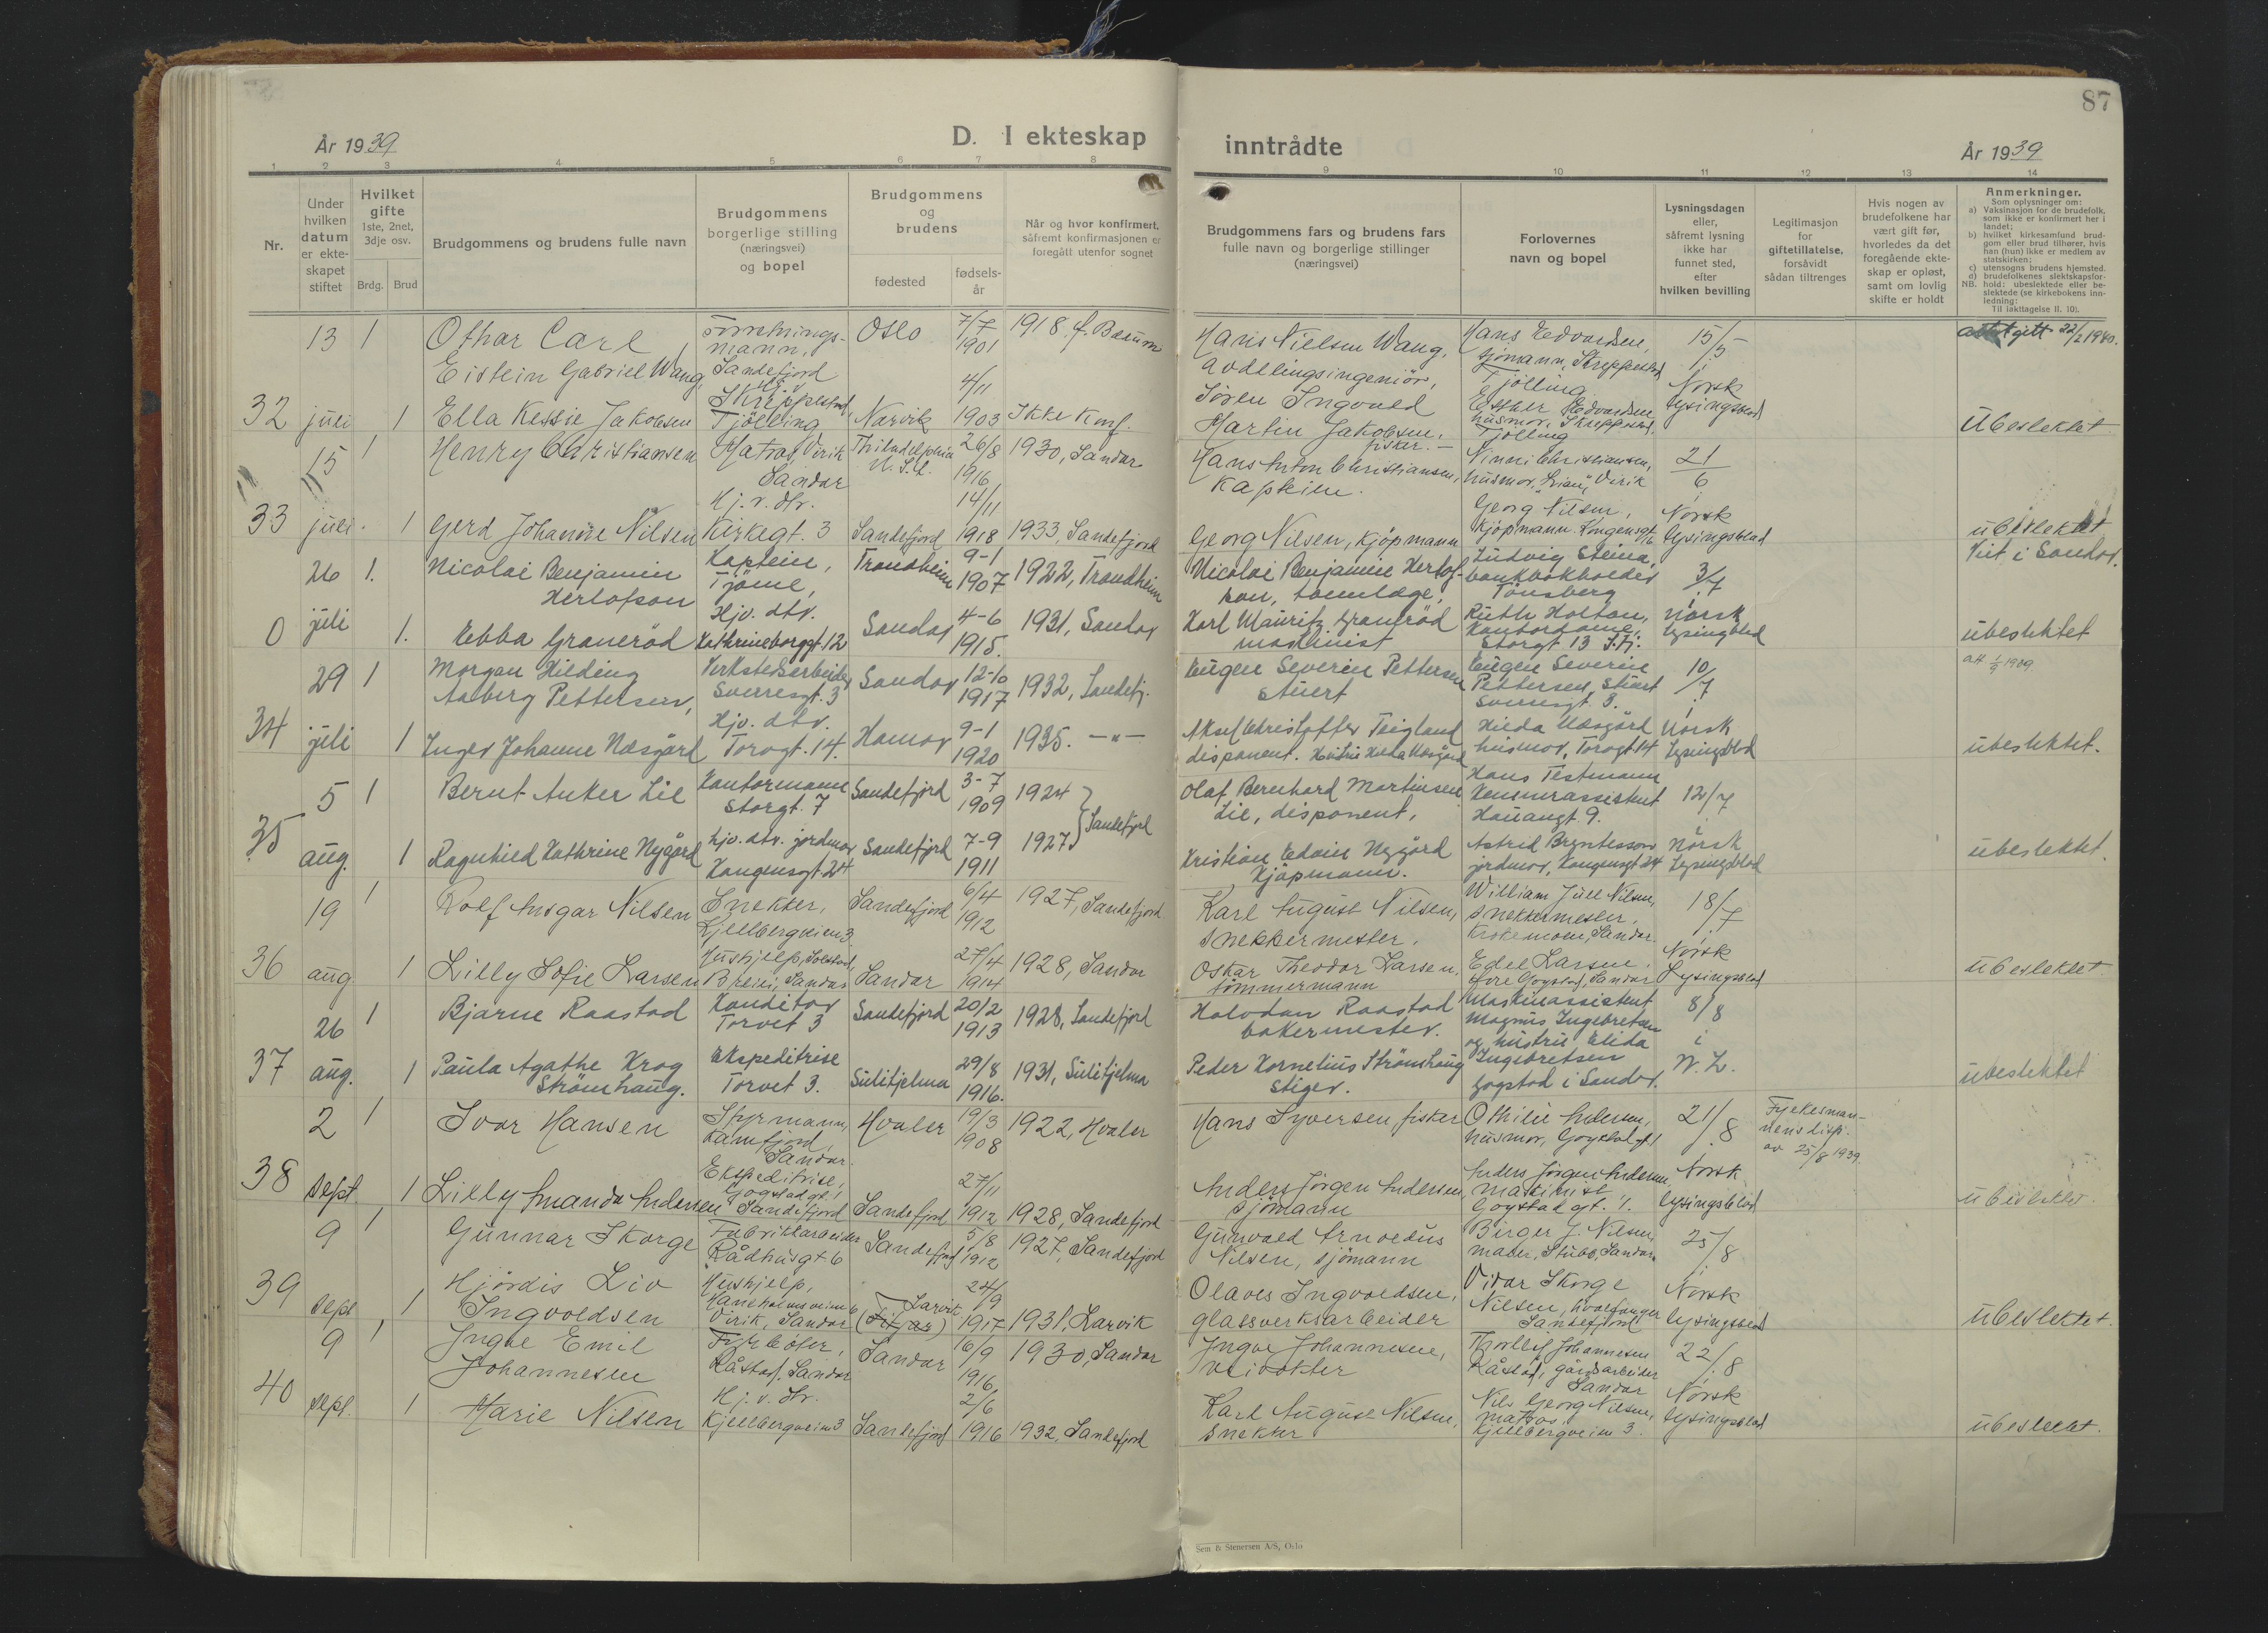 87
År 1939
D. I ekteskap inntrådte
År 1939
1 2 3 4 5 6 7 8 9 10 11 12 13 14
Nr.
Under hvilken datum er ekteskapet stiftet
Hvilket gifte 1ste, 2net, 3dje osv.
Brdg. Brud
Brudgommens og brudens fulle navn
Brudgommens borgerlige stilling (næringsvei) og bopel
Brudgommens og brudens
fødested
fødselsår
Når og hvor konfirmert, såfremt konfirmasjonen er foregått utenfor sognet
Brudgommens fars og brudens fars fulle navn og borgerlige stillinger (næringsvei)
Forlovernes navn og bopel
Lysningsdagen eller, såfremt lysning ikke har funnet sted, efter hvilken bevilling
Legitimasjon for giftetillatelse, forsåvidt sådan tiltrenges
Hvis nogen av brudefolkene har vært gift før, hvorledes da det foregående ekteskap er opløst, samt om lovlig skifte er holdt
Anmerkninger.
Som oplysninger om:
a) Vaksinasjon for de brudefolk, som ikke er konfirmert her i landet;
b) hvilket kirkesamfund brudgom eller brud tilhører, hvis han (hun) ikke er medlem av statskirken;
c) utensogns brudens hjemsted.
d) brudefolkenes slektskapsforhold: ubeslektede eller beslektede (se kirkebokens innledning:
NB. Til iakttagelse II. 10).
32
13 juli
1
Othar Carl
Eistein Gabriel Wang,
Forretningsmann, Sandefjord
Oslo
7/7 1901
1918
Hans Nielsen Wang, avdelingsingeniör,
Hans Edvardsen, sjömann, Skreppestad Tjölling
15/5
Norsk lysingsblad
gitt 22/2 1940.
1
Ella Kessie Jakobsen
Skreppestad, Tjölling
Narvik
4/11 1903
Ikke Konf.
Sören Ingvald Martin Jakobsen, fisker.
Esther Edvardsen husmor, Skreppestad. Tjölling
Ubeslektet
33
15 juli
1
Henry Christiansen
Matros, Virik Sandar
Philadelphia U.S.A.
26/8 1916
1930, Sandar
Hans Anton Christiansen, Kaptein.
Ninni Christiansen, husmor, Virik
21/6
Norsk lysingsblad
1
Gerd Johanne Nilsen
Hj. v. dtr. Kirkegt. 3
Sandefjord
14/11 1918
1933, Sandefjord
Georg Nilsen, kjöpmann
Georg Nilsen, kjöpmann
ubeslektet
26 juli
1.
Nicolai Benjamin Herlofson
Kaptein, Tjöme,
Trondheim
9-1 1907
1922, Trondheim
Nicolai Benjamin Herlofson, tannlæge,
Ludvig Steina, bankbokholder Tönsberg
3/7
Norsk lysingsblad
Viet i Sandar.
0
1.
Ebba Graneröd
Hjv. dtr. Kathrineborggt. 12
Sandar
4-6 1915.
1931, Sandar
Karl Mauritz Graneröd maskinist
Ruth Holtan, Kontordame, Storgt 13 S.fj.
ubeslektet
34
29 juli
1
Morgan Hilding Aaberg Pettersen,
Verkstedsarbeider Sverresgt. 3
Sandar
12-10 1917
1932, Sandefj.
Eugen Severin Pettersen stuert
Eugen Severin Pettersen, stuert Sverresgt 3.
10/7
Norsk Lysingsblad
1
Inger Johanne Næsgård
Hjv. dtr. Torvgt. 14.
Hamar
9-1 1920
1935. —"—
Christoffer Teigland disponent.
Hilda Næsgård husmor, Torvgt 14
ubeslektet.
35
5 aug.
1
Bernt Anker Lie
Kontormann Storgt. 7
Sandefjord
3-7 1909
1924
Olaf Bernhard Martinsen Lie, disponent,
Hans Testmann Kemnerassistent Hauangt 9.
12/7
Norsk Lysingsblad
1
Ragnhild Kathrine Nygård
hjv. dtr. jordmor Kongensgt 24
Sandefjord
7-9 1911
1927 Sandefjord
Kristian Edvin Nygård Kjöpmann.
Astrid Bryntesson jordmor, Kongensgt 24
ubeslektet.
36
19 aug
1
Rolf Ansgar Nilsen
Snekker, Kjellbergveien 3
Sandefjord
6/4 1912
1927, Sandefjord
Karl August Nilsen, snekkermester.
William Juel Nilsen, snekkermester, Krokemoen, Sandar.
18/7
Norsk Lysingsblad
1
Lilly Sofie Larsen
Hushjelp, Solstad, Breili, Sandar
Sandar
27/4 1914
1928, Sandar
Oskar Theodor Larsen, tömmermann
Edel Larsen, Gogstad, Sandar
ubeslektet
37
26 aug.
1
Bjarne Raastad
Konditor Torvet 3
Sandefjord
20/2 1913
1928, Sandefjord
Halvdan Raastad bakermester.
Maskinassistent Magnus Ingebretsen og hustru Elida Ingebretsen Gogstad i Sandar.
8/8
i N. L.
1
Paula Agathe Krog Strömhaug.
Ekspeditrise Torvet 3.
Sulitjelma
29/8 1916.
1931, Sulitjelma
Peder Kornelius Strömhaug Stiger.
ubeslektet
38
2 sept
1
Ivar Hansen
Styrmann, Kamfjord, Sandar.
Hvaler
19/3 1908
1922, Hvaler
Hans Syversen fisker
Othilie Andersen, husmor, Gogstad gt. 1
21/8
Norsk lysingsblad
Fylkesmannens disp. av 25/8 1939
1
Lilly Amanda Andersen
Ekspeditrise, Gogstadgt. 1 Sandefjord
Sandefjord
27/11 1912
1928, Sandefjord
Anders Jörgen Andersen, sjömann
Anders Jörgen Andersen, maskinist Gogstad gt. 1.
ubeslektet
39
9 sept
1
Gunnar Skorge
Fabrikkarbeider Rådhusgt 6
Sandefjord
5/8 1912
1927, Sandefjord
Gunvald Arnoldus Nilsen, sjömann
Birger J. Nilsen, maler, Stubb, Sandar.
25/8
Norsk lysingsblad
1
Hjördis Liv Ingvoldsen
Hushjelp, Haneholmveien 6 Virik, Sandar
Larvik
24/9 1917
1931, Larvik
Olaves Ingvoldsen, glassverksarbeider
Vidar Skorge Nilsen, hvalfanger Sandefjord
ubeslektet.
40
9 sept.
1
Ingve Emil Johannesen
Fyrböter, Råstad, Sandar
Sandar
6/9 1916
1930, Sandar
Ingve Johannesen,
Thorleif Johannesen Råstad, gårdsarbeider Sandar
22/8
Norsk lysingsblad
1
Marie Nilsen
Hj. v. dtr. Kjellbergveien 3
Sandefjord
2/6 1916
1932, Sandefjord
Karl August Nilsen, snekker
Nils Georg Nilsen, matros, Kjellbergveien 3.
ubeslektet.
Sem & Stenersen A/S, Oslo